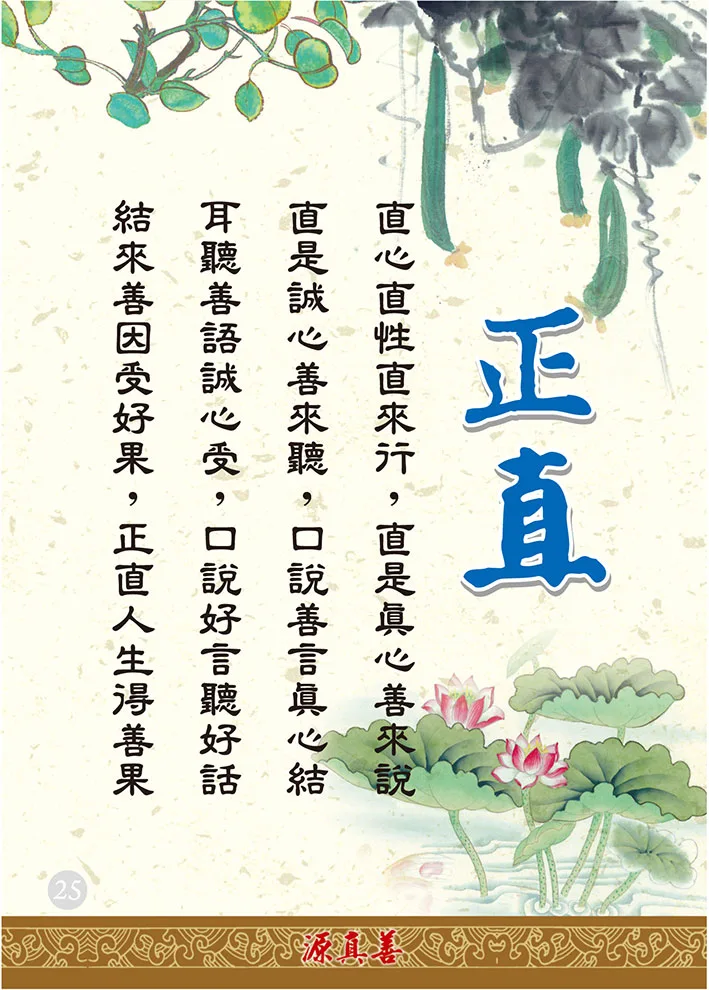 正直
直心直性直來行，直是眞心善來說
直是誠心善來聽，口說善言眞心結
耳聽善語誠心受，口說好言聽好話
結來善因受好果，正直人生得善果
25
源真善